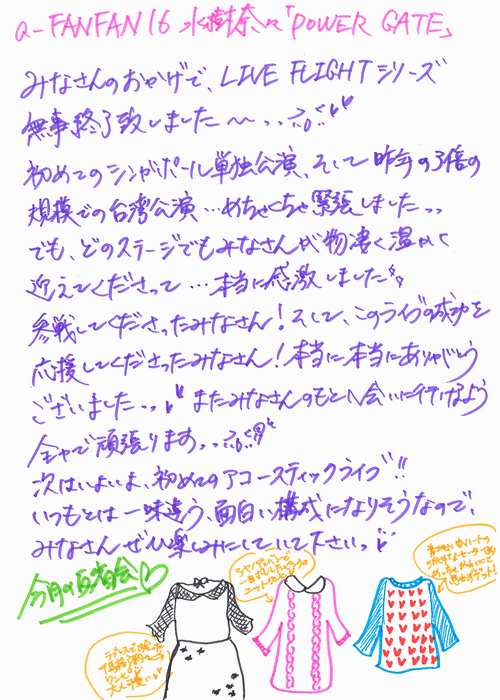 Q-FANFAN16 水樹奈々「POWER GATE」
みなさんのおかげで、LIVE FLIGHTシリーズ
無事終了致しました〜〜...
初めてのシンガポール単独公演、そして昨年の3倍の
規模での台湾公演…めちゃくちゃ緊張しました...
でも、どのステージでもみなさんが物凄く温かく
迎えてくださって…本当に感激しました
参戦してくださったみなさん!そして、このライブの成功を
応援してくださったみなさん!本当に本当にありがとう
ございました...またみなさんのもとへ会いに行けるよう
全力で頑張ります...
次はいよいよ、初めてのアコースティックライブ!!
いつもとは一味違う、面白い構成になりそうなので、
みなさんぜひ楽しみにしていて下さいっ
今月の
大人